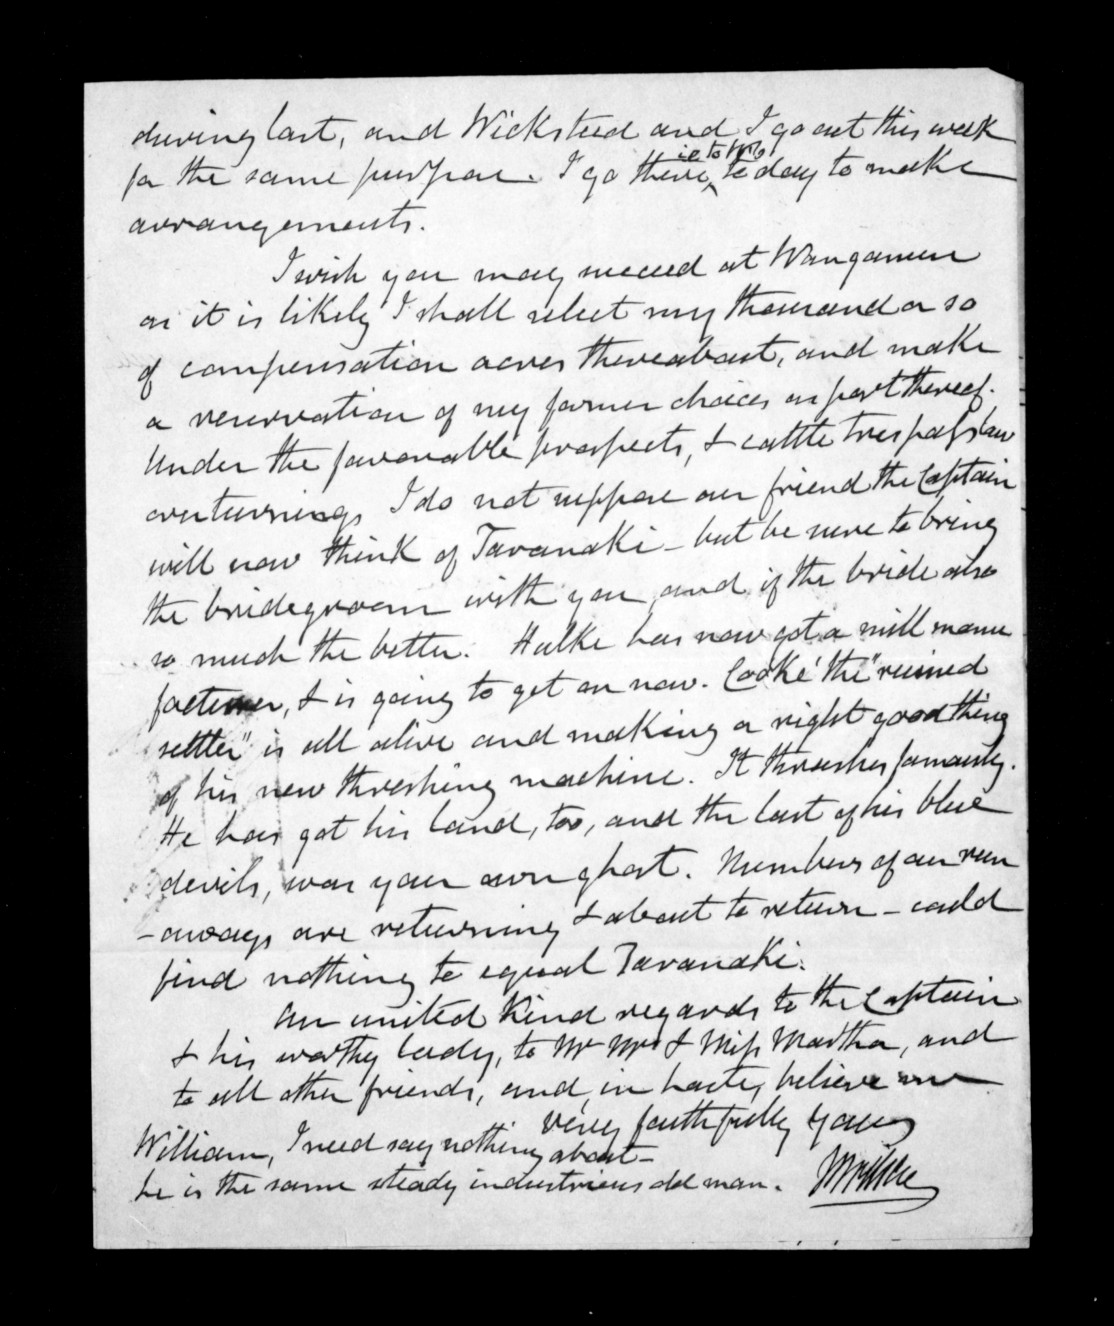 during last, and Wicksteed and I go out this week
for the same purpose. I go there, to day to make
arrangements.
I wish you may succeed at Wanganui
as it is likely I shall select my thousand or so
of compensation acres thereabout, and make
a reservation of my former choices as part thereof.
Under the favorable prospects, & cattle trespass law
overturnings I do not suppose our friend the Captain
will now think of Taranaki - but be sure to bring
the bridegroom with you and, if the bride also
so much the better. Hulke has now got a mill manu
facturer, & is going to get on now. Cooke "the "ruined
settler" is all alive and making a right good thing
of his new threshing machine. It threshes famously.
He has got his land, too, and the last of his blue
devils, was your own ghost. Numbers of our run
-aways are returning & about to return - could
find nothing to equal Taranaki.
Our united kind regards to the Captain
& his worthy lady, to Mr Mrs & Miss Martha, and
to all other friends, and, in haste, believe me
very faithfully yours
William, I need say nothing about -
he is the same steady industrious old man.